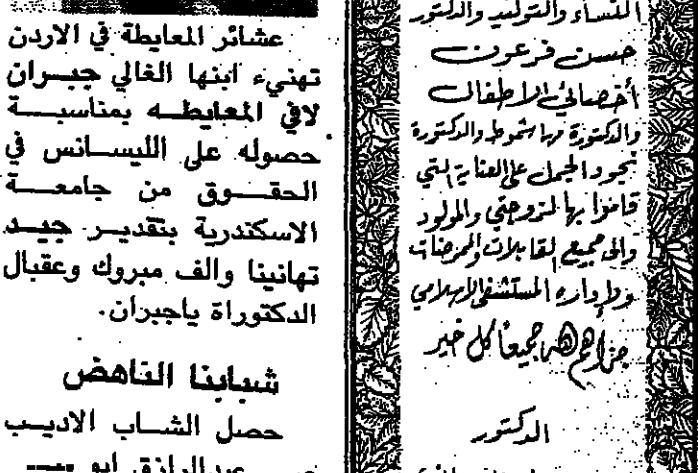 النساء والتوليد والدكتور
حسن فرعون
أخصائي الاطفال
والدكتورة مها شموط والدكتورة
نجود الجمل على العناية التي
قاموا بها لزوجتي والمولود
والى جميع القابلات والممرضات
وادارة المستشفى الاسلامي
جزاهم الله جميعاً كل خير
الدكتور
عشائر المعايطة في الاردن
تهنيء ابنها الغالي جبران
لافي المعايطه بمناسبة
حصوله على الليسانس في
الحقوق من جامعة
الاسكندرية بتقدير جيد
تهانينا والف مبروك وعقبال
الدكتوراة ياجبران.
شبابنا الناهض
حصل الشاب الاديب
عبدالرازق ابو